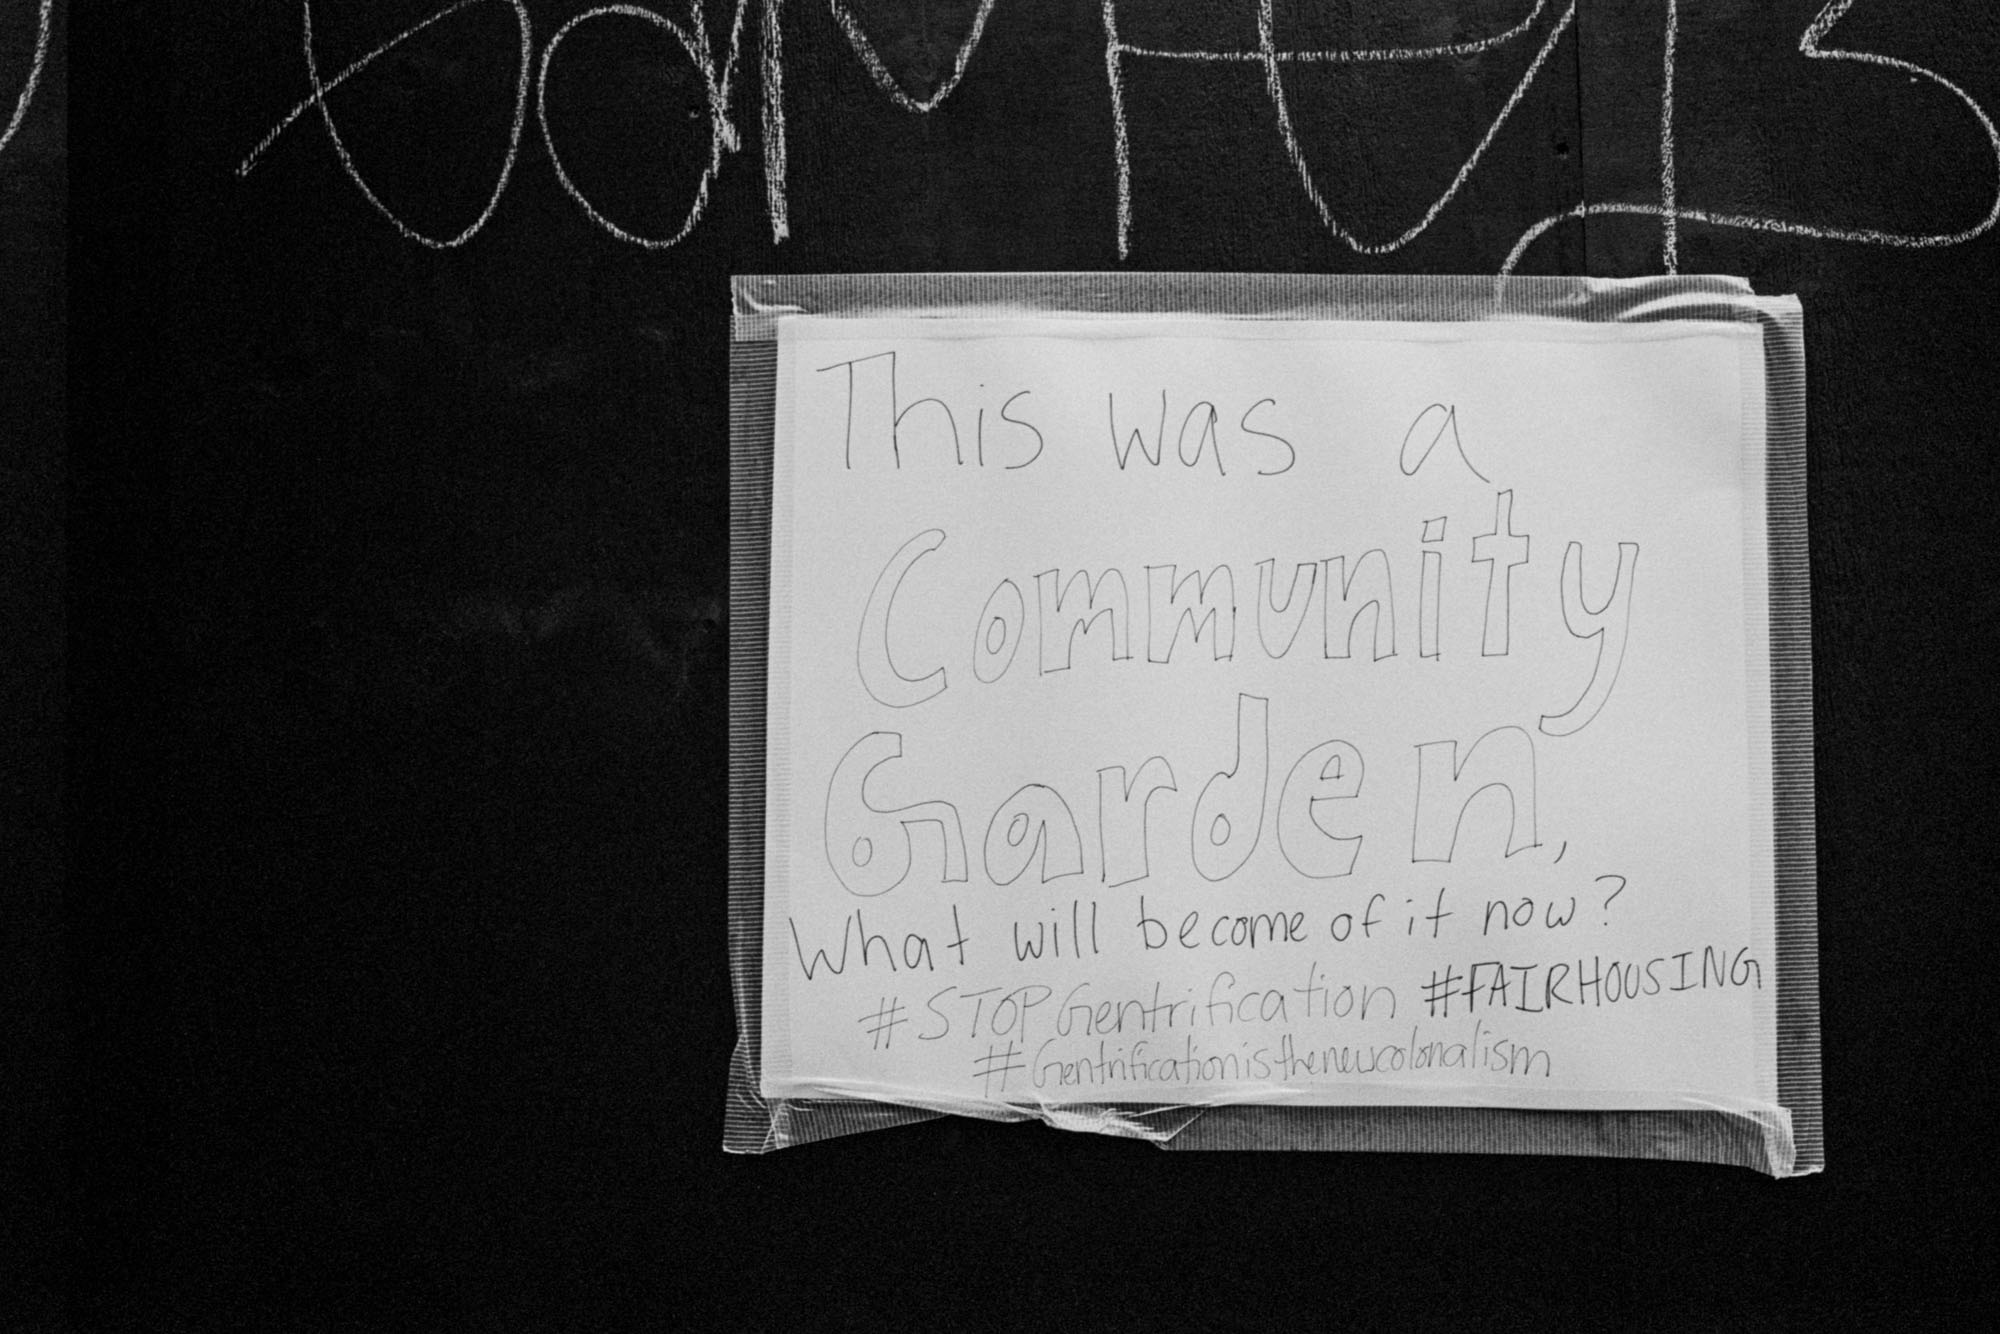 This was a
Community
Garden,
What will become of it now?
#STOPGentrification #FAIRHOUSING
#Gentrificationisthenewcolonalism